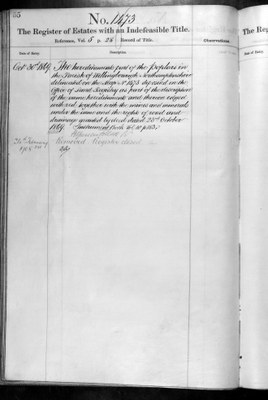 55
No. 1473
The Register of Estates with an Indefeasible Title.
The Re
Reference, Vol. 5 p. 25 Record of Title.
Date of Entry. Description. Observations.
Date of Entry.
Oct 30th 1869 The hereditaments part of the
in
the Parish of Wellingborough Northamptonshire
delineated on the Map No 1473 deposited in the
Office of Land Registry as part of the description
of the same hereditaments and thereon edged
with red together with the mines and minerals
under the same and the rights of road and
drainage granted by deed dated 22nd October
1869
Removed Register closed